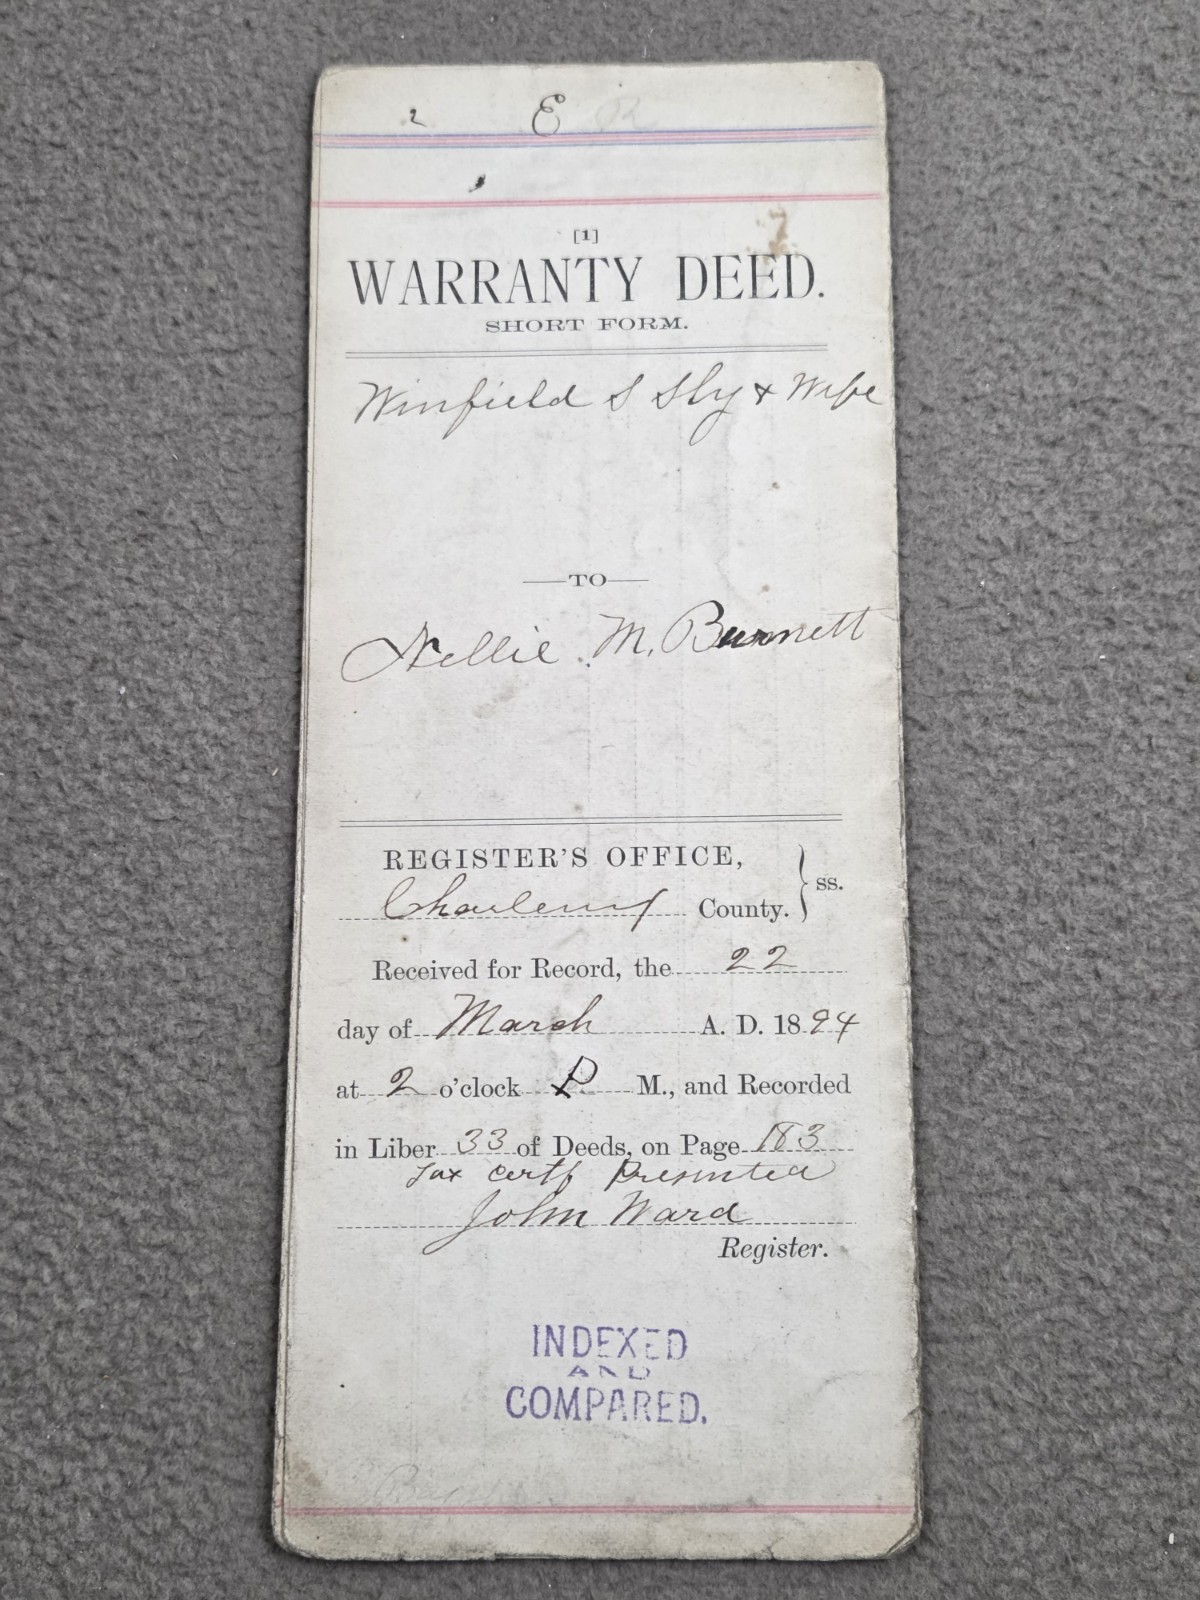 2 E R
[1]
WARRANTY DEED.
SHORT FORM.
Winfield S Sly & Wife
—TO—
Nellie M. Burnett
REGISTER'S OFFICE,
County. } ss.
Received for Record, the 22
day of March A. D. 1894
at 2 o'clock P M., and Recorded
in Liber 33 of Deeds, on Page 183
Tax Certf Presented
John Ward
Register.
INDEXED
AND
COMPARED.